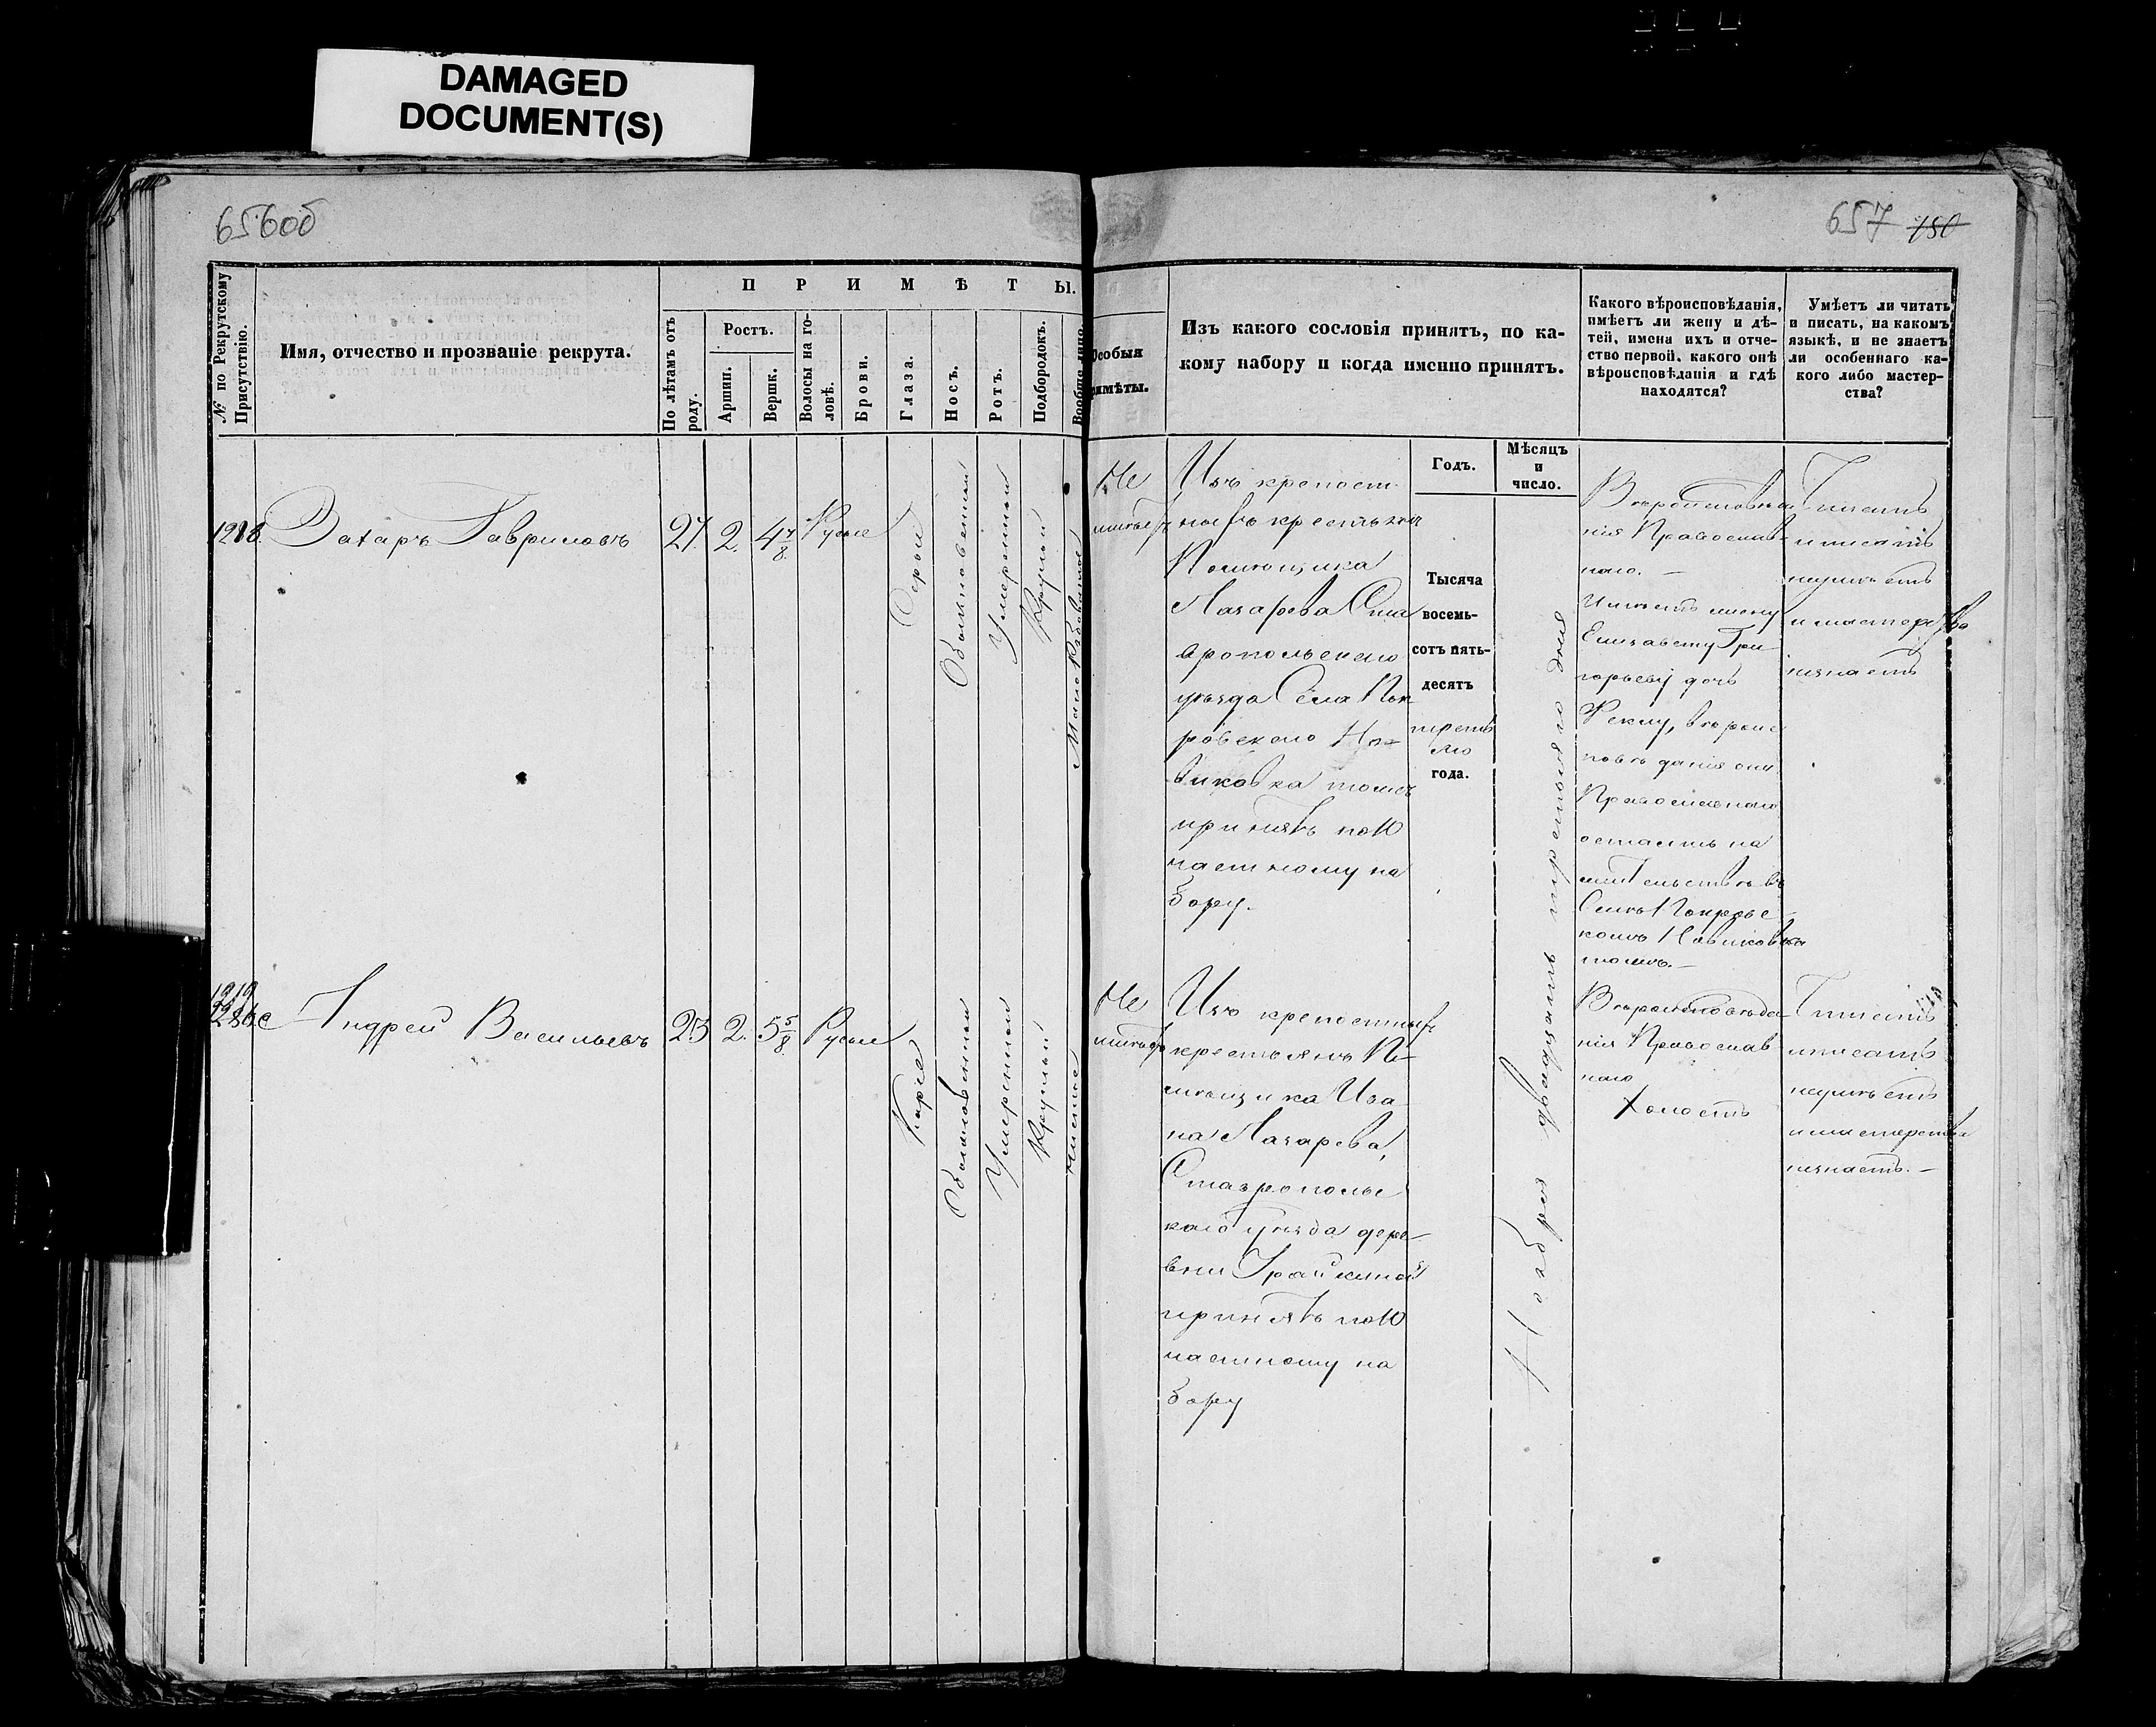 DAMAGED
DOCUMENT(S)
656об
657 180
№ по Рекрутскому Присутствію.
Имя, отчество и прозваніе рекрута.
ПРИМѢТЫ.
По лѣтамъ отъ роду.
Ростъ.
Аршин.
Вершк.
Волосы на головѣ.
Брови.
Глаза.
Носъ.
Ротъ.
Подбородокъ.
Вообще лицо.
Особыя
примѣты.
Изъ какого сословія принятъ, по ка-
кому набору и когда именно принятъ.
Какого вѣроисповѣданія,
имѣетъ ли жену и дѣ-
тей, имена ихъ и отче-
ство первой, какого онѣ
вѣроисповѣданія и гдѣ
находятся?
Умѣетъ ли читать
и писать, на какомъ
языкѣ, и не знаетъ
ли особеннаго ка-
кого либо мастер-
ства?
Годъ.
Мѣсяцъ
и
число.
Захаръ Гавриловъ
27. 2. 4 7/8. Русые
Серые
Обыкновенный
Умеренный
Круглый
Не
имѣетъ
Изъ крепост-
ныхъ крестьянъ
Помѣщика
Лазарева Ста
вропольскаго
уѣзда Села Пок
ровскаго Но-
виковка тожъ
принятъ по 10
частному на
бору.
Тысяча
восемь-
сотъ пять-
десятъ
треть
яго
года.
Ноября двадцать третьяго дня
Вероисповѣда
нія Православ-
наго.-
Имѣетъ жену
Елизавету Гри
горьеву дочь
Феклу, вѣроис
повѣданія они
Православнаго
остаютъ на
жительствѣ въ
Селѣ Покровс-
комъ Новиковка
тожъ.-
Читать
и писать
неумѣетъ
и мастерства
незнаетъ
Андрей Васильевъ
23 2. 5 5/8. Русые
Каріе
Обыкновенный
Умеренный
Круглый
Чистое
Не
имѣетъ
Изъ крепостныхъ
крестьянъ По-
мѣщика Ива
на Лазарева,
Ставропольс
каго уѣзда дере-
вни Грайкиной
принятъ по 10
частному на
бору
Вероисповѣда-
нія Православ
наго
Холостъ
Читать
и писать
неумѣетъ
и мастерства
незнаетъ.-